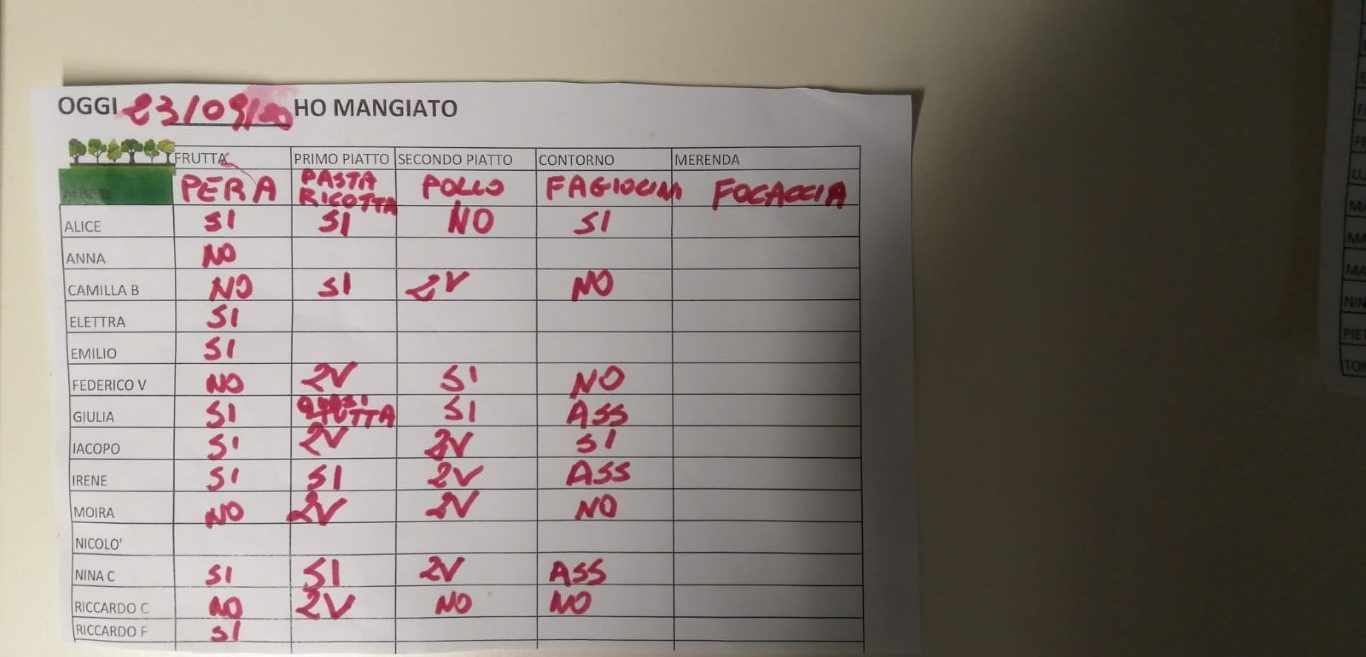 OGGI 23/09/20 HO MANGIATO
FRUTTA PRIMO PIATTO SECONDO PIATTO CONTORNO MERENDA
PERA PASTA RICOTTA POLLO FAGIOLINI FOCACCIA
ALICE SI SI NO SI
ANNA NO
CAMILLA B NO SI 2V NO
ELETTRA SI
EMILIO SI
FEDERICO V NO 2V SI NO
GIULIA SI QUASI TUTTA SI ASS
IACOPO SI 2V 2V SI
IRENE SI SI 2V ASS
MOIRA NO 2V 2V NO
NICOLO'
NINA C SI SI 2V ASS
RICCARDO C NO 2V NO NO
RICCARDO F SI